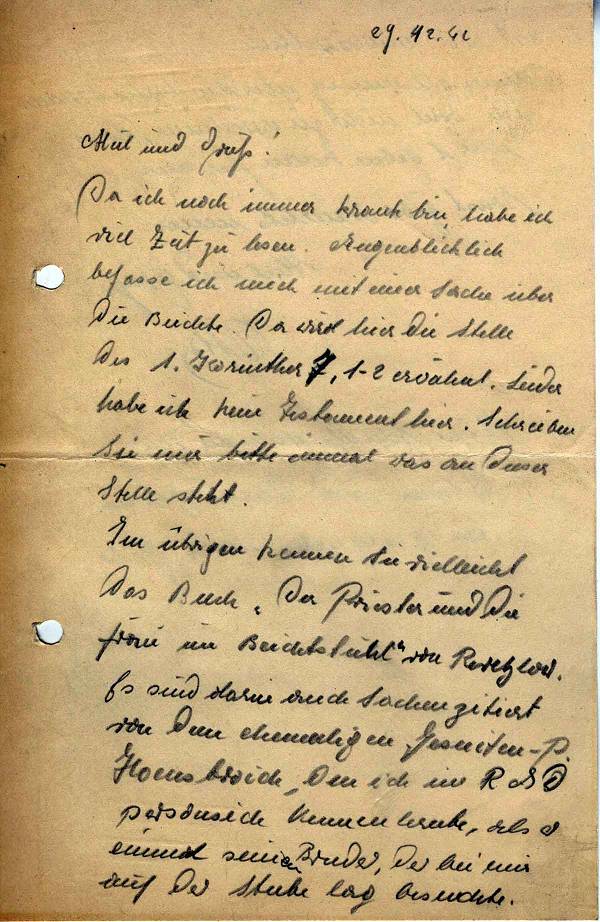 29.12.42
Mut und Gruß!
Da ich noch immer krank bin, habe ich
viel Zeit zu lesen. Augenblicklich
befasse ich mich mit einer Sache über
die Beichte. Da wird hier die Stelle
des 1. Korinther 7, 1-2 erwähnt. Leider
habe ich kein Testament hier. Schreiben
Sie mir bitte einmal was an dieser
Stelle steht.
Im übrigen kennen Sie vielleicht
das Buch „Der Priester und die
Frau im Beichtstuhl" von
Es sind darin auch Sachen zitiert
von dem ehemaligen Jesuiten-P.
Hoensbroich, den ich im R A D
persönlich kennen lernte, als er
einmal seinen Bruder, der bei mir
auf der Stube lag besuchte.